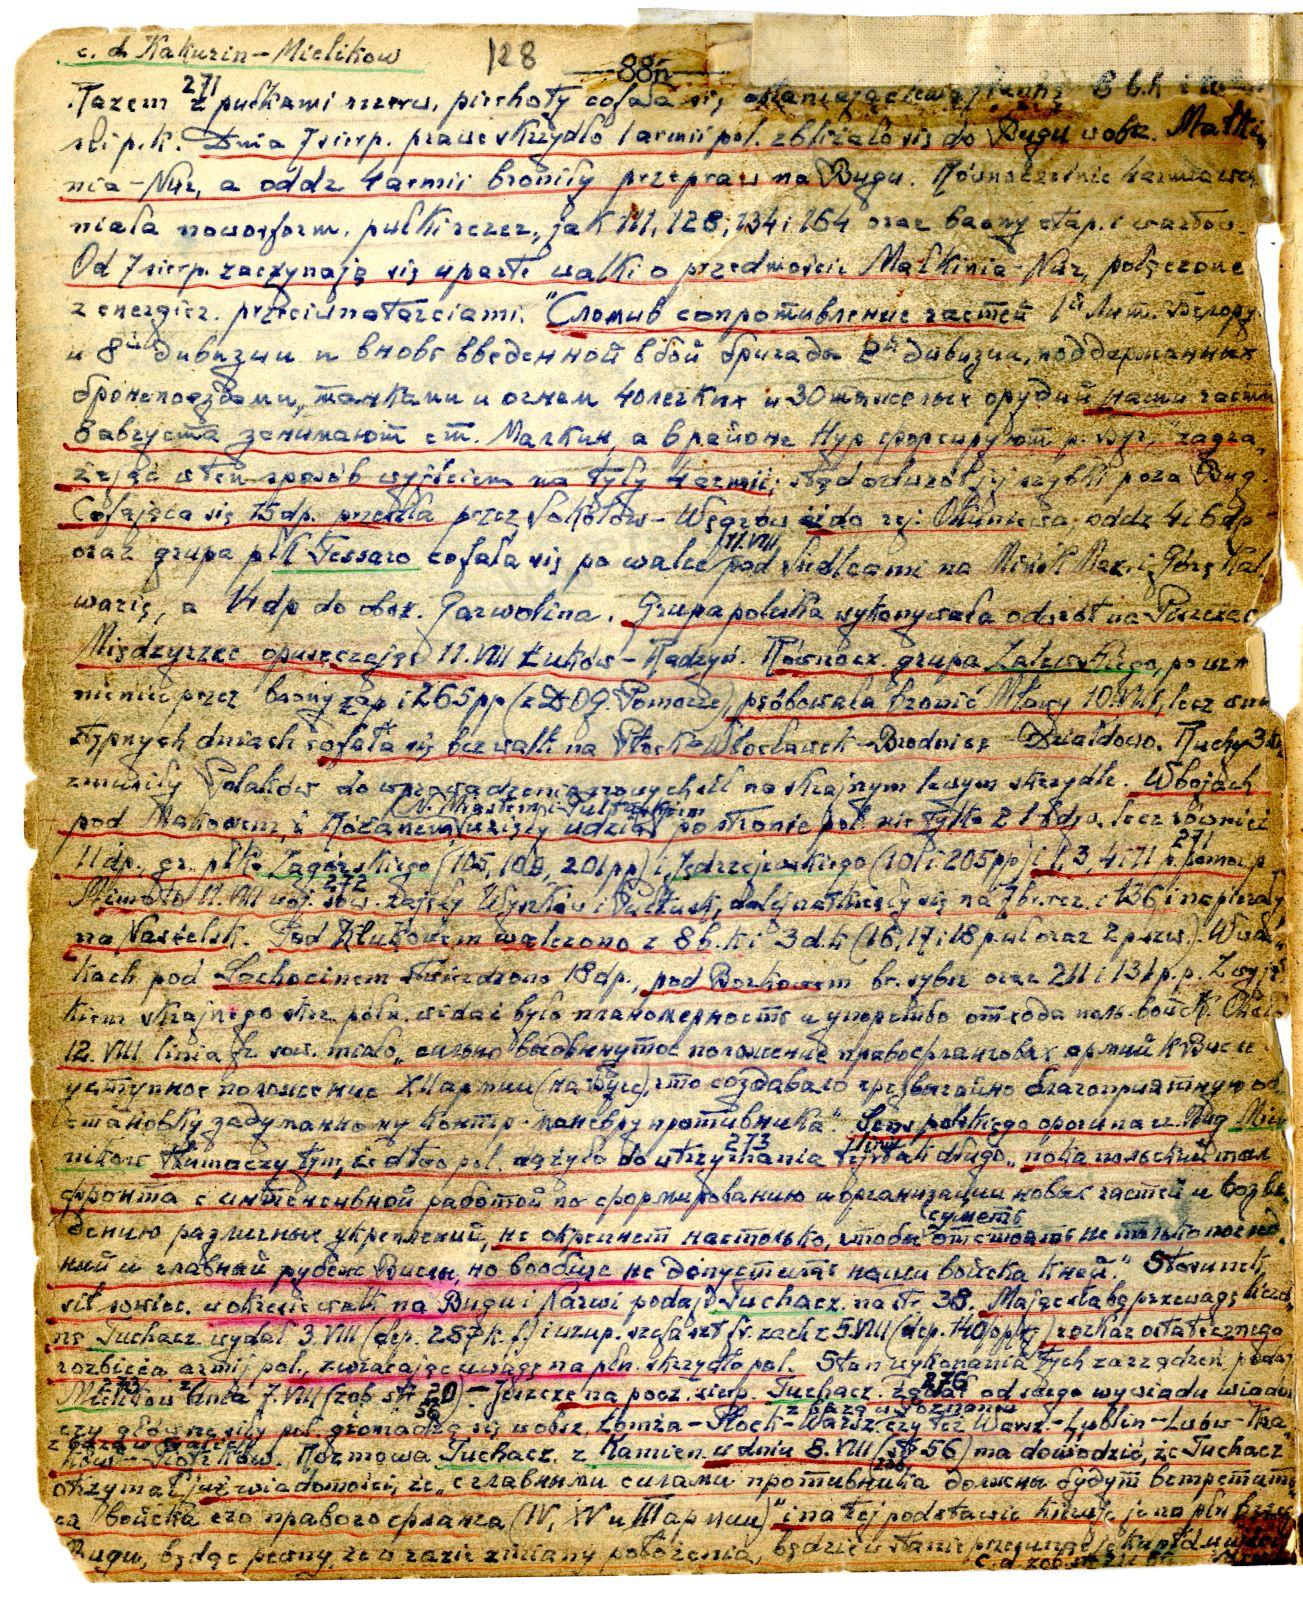 c. d. Kakurin – Mielikow
128
88n
271
Razem z pułkami rezerw. piechoty cofała się osłaniająca lewą flankę 8 b.k. i
ski p.k. Dnia 7 sierp. prawe skrzydło 1 armii pol. zbliżało się do Bugu w obsz. Małki
nia – Nur, a oddz 4 armii broniły przepraw na Bugu. Równocześnie 4 armia wch
niała nowosform. pułki rezer., jak 111, 128, 134 i 164 oraz baony etap. i wartow.
Od 7 sierp. zaczynają się uparte walki o przedmoście Małkinia – Nur, połączone
z energicz. przeciwnatarciami. "Сломив сопротивление частей 1й Лит. Белору.
и 8й дивизии и вновь введенной в бой бригады 2й дивизии, поддержанных
бронепоездами, танками и огнем 40 легких и 30 тяжелых орудий наши части
8 августа занимают ст. Малкин, а в районе Нур форсируют р. Буг," zagra
żając w ten sposób wyjściem na tyły 4 armii; stąd odwrót jej szybki poza Bug.
Cofająca się 15 dp. przeszła przez Sokołów – Węgrów do rej. Okuniewa, oddz 4 i 6 dp
11.VIII
oraz grupa płk Tessaro cofała się po walce pod Siedlcami na Mińsk Maz. i Górę Kal
warię, a 14 dp do obsz. Garwolina. Grupa poleska wykonywała odwrót na Piszczac
Międzyrzec opuszczając 11.VIII Łuków – Radzyń. Równocz. grupa Zalewskiego, po wzm
nieniu przez baony zap i 265 pp (z DOG. Pomorze), próbowała bronić Mławy 10.VIII, lecz w na
stępnych dniach cofała się bez walki na Płock – Włocławek – Brodnicę Działdowo. Ruchy 3
zmusiły Polaków do wprowadzenia nowych sił na skrajnym lewym skrzydle. W bojach
(N. Miastem i Pułtuskiem
pod Makowem, i Różanem wzięły udział po stronie pol. nie tylko 2 L-B dyw., lecz również
271
11 dp., gr. płk. Zagórskiego (105, 108, 201 pp) i Jędrzejewskiego (101 i 205 pp) i 1, 3, 4 i 71 p. pomor. p.
272
Mimoto 11.VIII woj. sow. zajęły Wyszków i Pułtusk, dalej natknęły się na 7 br. rez. i 136 i napierały
na Nasielsk. Pod Kluków walczono z 8 b.k. i 3 d.k. (16, 17 i 18 p. uł oraz 2 p. szw.). W wal
kach pod Sochocinem stwierdzono 18 dp., pod Borkowem br. syber oraz 211 i 131 p.p. Z wyjąt
kiem skrajnego skrz. półn. widać było планомерность и упорство отхода поль. войск.
12.VIII linia fr. sow. miała „сильно выдвинутое положение правофланговых армий к Висле
уступное положение XII армии (на Буге), что создавало чрезвычайно благоприятную об
становку задуманному контр-маневру противника". Sens polskiego oporu na rz. Bug Mie
273
linii
likow tłumaczy tym, że dtwo pol. dążyło do utrzymania tej tak długo, „пока польский тыл
фронта с интенсивной работой по сформированию и организации новых частей и возве
сумеет
дению различных укреплений, не окрепнет настолько, чтобы отстоять не только послед
ний и главный рубеж Вислы, но вообще не допустить наши войска к ней." Stosunek
sił sowiec. w okresie walk na Bugu i Narwi podaje Tuchacz. na str. 38. Mając słabą przewagę licze
ną Tuchacz. wydał 3.VIII (dep. 287 k. f.) i uzup. szefa szt fr. zach z 5.VIII (dep. 140 op/k) rozkaz ostatecznego
rozbicia armij pol., zwracając uwagę na płn. skrzydło pol. Stan wykonania tych zarządzeń podaje
273
276
Mielikow dnia 7.VIII (zob. str. 20) – Jeszcze na pocz. sierp. Tuchacz. żądał od swego wywiadu wiado
56
z bazą w Poznaniu
czy główne siły pol. gromadzą się w obsz. Łomża – Płock – Warsz. czy też Warsz – Lublin – Lwów – Kra
ków – Piotrków. Rozmowa Tuchacz. z Kamien. w dniu 8.VIII (str 56) ma dowodzić, że Tuchacz.
otrzymał już wiadomości, że „с главными силами противника должны будут встретить
ся войска его правого фланга (IV, XV и III армии)" i na tej podstawie kieruje je na płn brzeg
Bugu, będąc pewny, że w razie zmiany położenia, będzie w stanie przesunąć je ku płd.